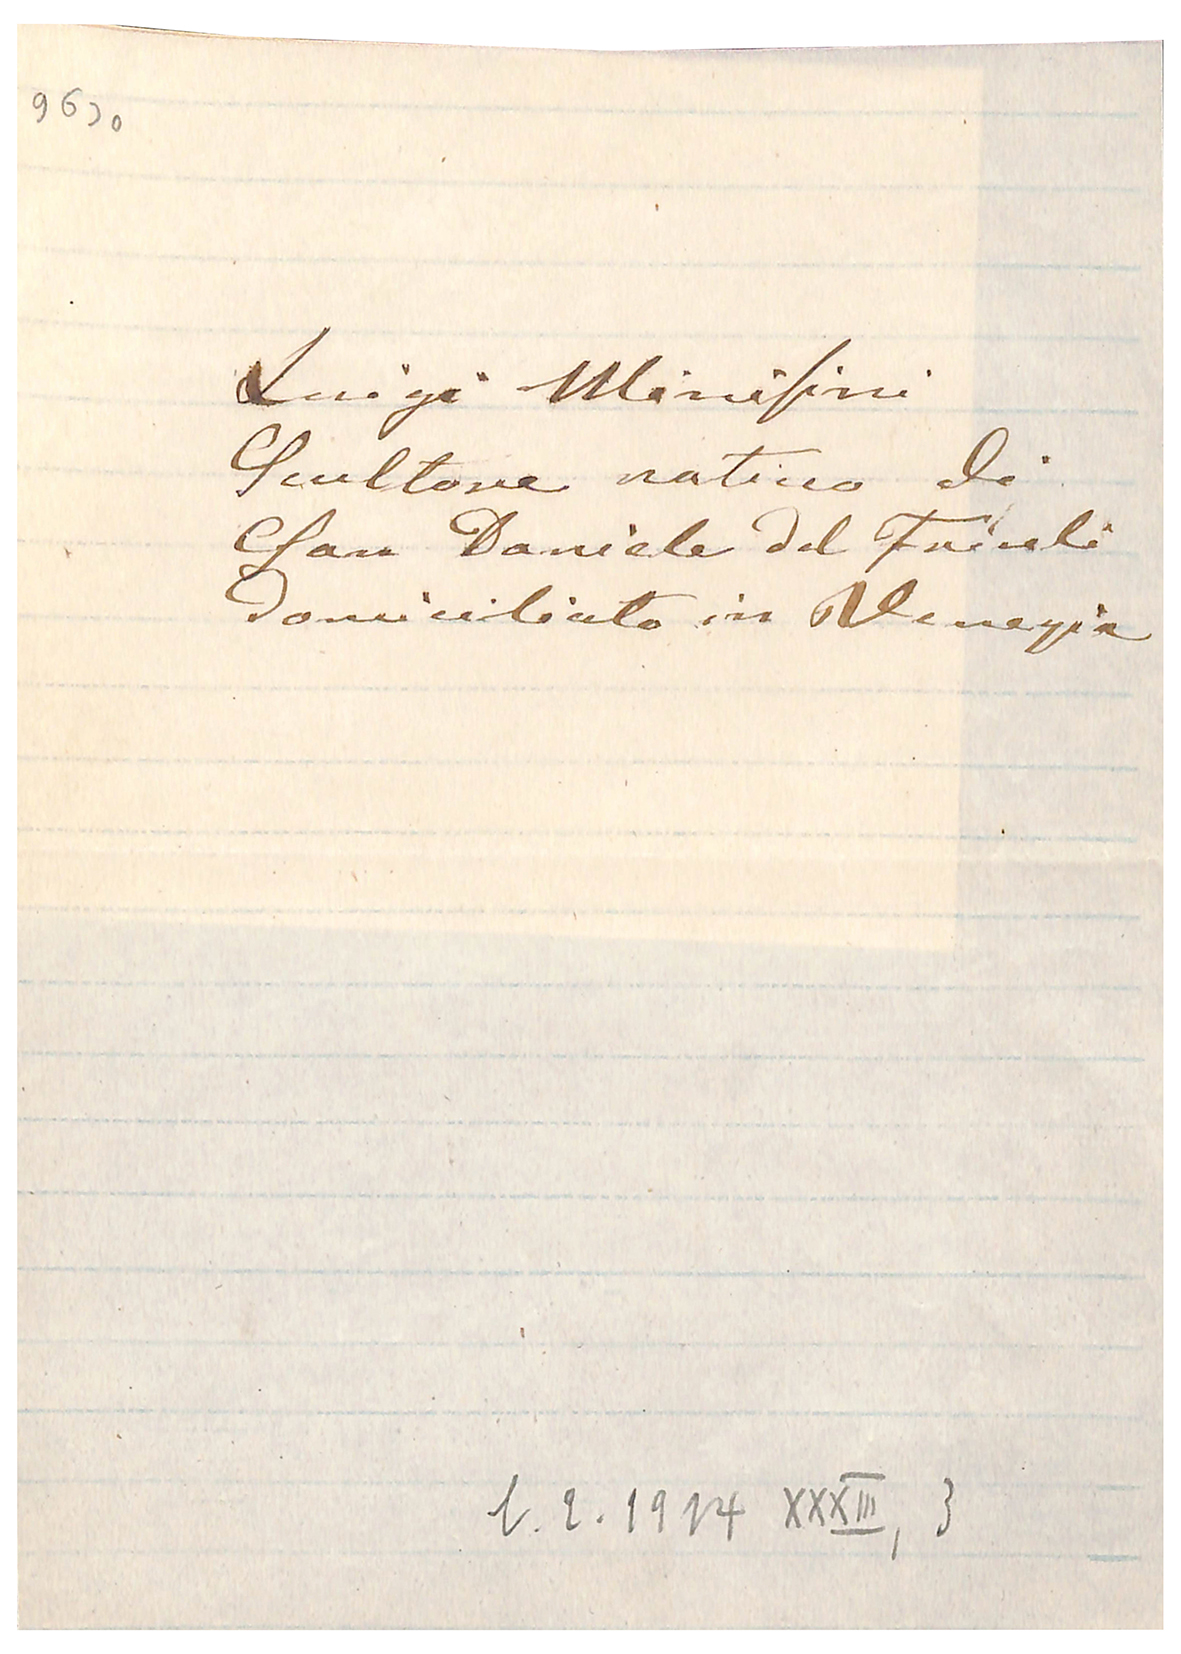 Luigi Minisini
Scultore nativo di
San Daniele del Friuli
domiciliato in Venezia
1914 XXXIII, 3